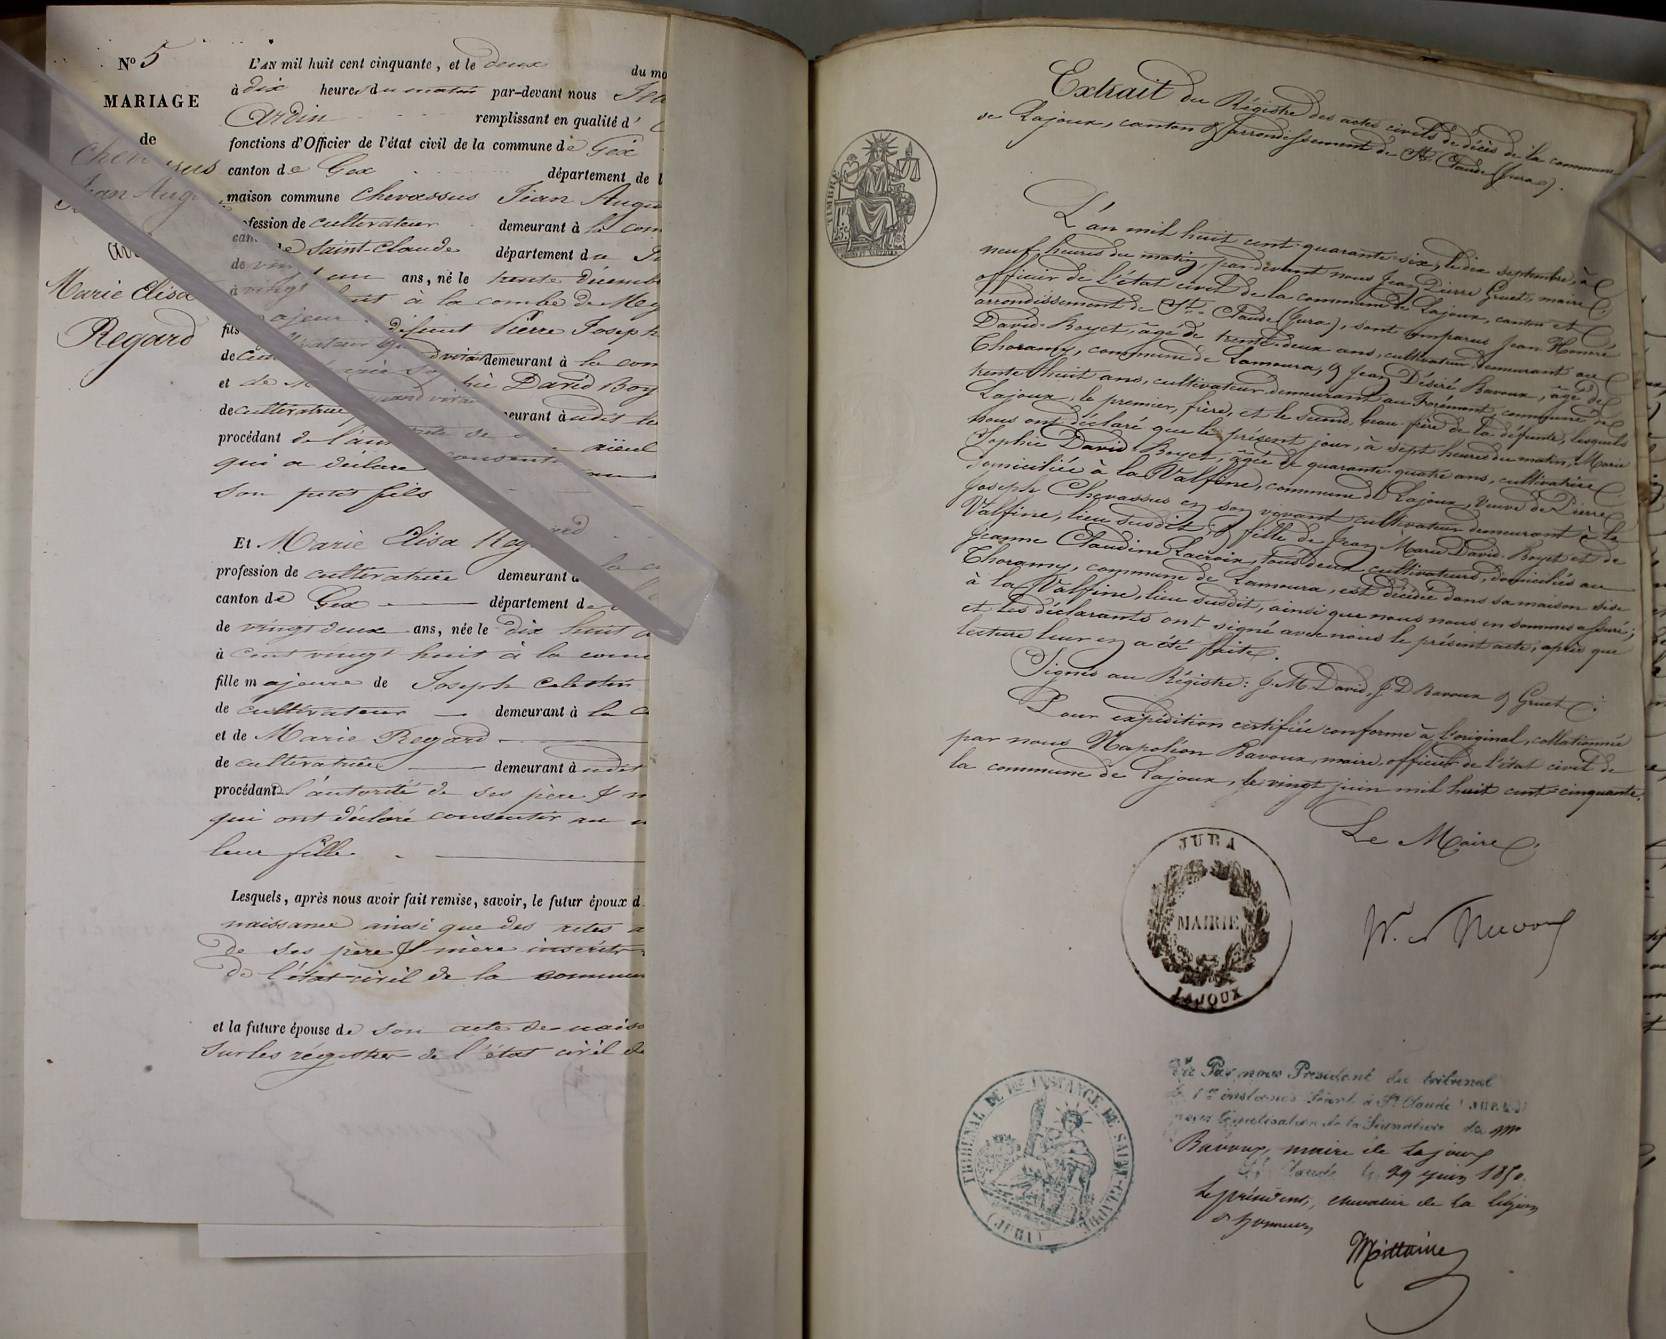 No 5
MARIAGE
de
Chevassus
Jean Aug
Marie Elisa
Regard
L'AN mil huit cent cinquante, et le deux du mo
à dix heures du matin par-devant nous Jea
remplissant en qualité d'
fonctions d'Officier de l'état civil de la commune de Gex
canton de Gex département de l
maison commune Chevassus Jean Augu
ofession de cultivateur demeurant à la com
de Saint-Claude département du Ju
de vingt un ans, né le trente décemb
à vingt huit à la combe de Mij
fils majeur Pierre Joseph
de demeurant à la com
et de David Boy
de cultivatrice demeurant à udit lie
procédant de l'autorité de aïeul
qui a déclaré consentir au
son petit fils
Et Marie Elisa Regard
profession de cultivatrice demeurant à la c
canton de Gex département de l
de vingt deux ans, née le dix huit a
à cent vingt huit à la com
fille majeure de Joseph Celestin
de cultivateur demeurant à la c
et de Marie Regard
de cultivatrice demeurant à udit
procédant de l'autorité de ses père & m
qui ont déclaré consentir au m
leur fille
Lesquels, après nous avoir fait remise, savoir, le futur époux d
naissance ainsi que des actes d
de ses père & mère inscrits
de l'état civil de la commun
et la future épouse de son acte de naiss
sur les régistres de l'état civil de
Extrait du Régistre des actes civils de décès de la commune
de Lajoux, canton & arrondissement de St. Claude (Jura).
TIMBRE
L'an mil huit cent quarante six, le dix septembre, à
neuf heures du matin, pardevant nous Jean Pierre Gruet, maire
officier de l'état civil de la commune de Lajoux, canton et
arrondissement de St. Claude (Jura), sont comparus Jean Honoré
David-Boyet, âgé de trente deux ans, cultivateur, demeurant au
Choramy, commune de Lamoura, & Jean Désiré Bavoux, âgé de
trente huit ans, cultivateur demeurant au Forémont, commune de
Lajoux, le premier frère, et le second beau-frère de la défunte, lesquels
nous ont déclaré que le présent jour, à sept heures du matin, Marie
Sophie David Boyet, âgée de quarante quatre ans, cultivatrice
domiciliée à la Valfine, commune de Lajoux, veuve de Pierre
Joseph Chevassus en son vivant cultivateur demeurant à la
Valfine, lieu susdit, & fille de Jean Marie David-Boyet et de
Jeanne Claudine Lacroix, tous deux cultivateurs, domiciliés au
Choramy, commune de Lamoura, est décédée dans sa maison sise
à la Valfine, lieu susdit, ainsi que nous nous en sommes assuré;
et les déclarants ont signé avec nous le présent acte, après que
lecture leur en a été faite.
Signés au Régistre: J. M David, J D Bavoux & Gruet.
Pour expédition certifiée conforme à l'original, collationnée
par nous Napoléon Bavoux, maire, officier de l'état civil de
la commune de Lajoux, le vingt juin mil huit cent cinquante.
Le Maire
JURA
MAIRIE
LAJOUX
TRIBUNAL DE 1re INSTANCE DE SAINT-CLAUDE
(JURA)
Vu Par nous Président du tribunal
de 1re instance séant à St Claude (JURA)
pour légalisation de la Signature de Mr
Bavoux, maire de Lajoux
St Claude le 29 juin 1850.
Le président, chevalier de la légion
d'honneur,